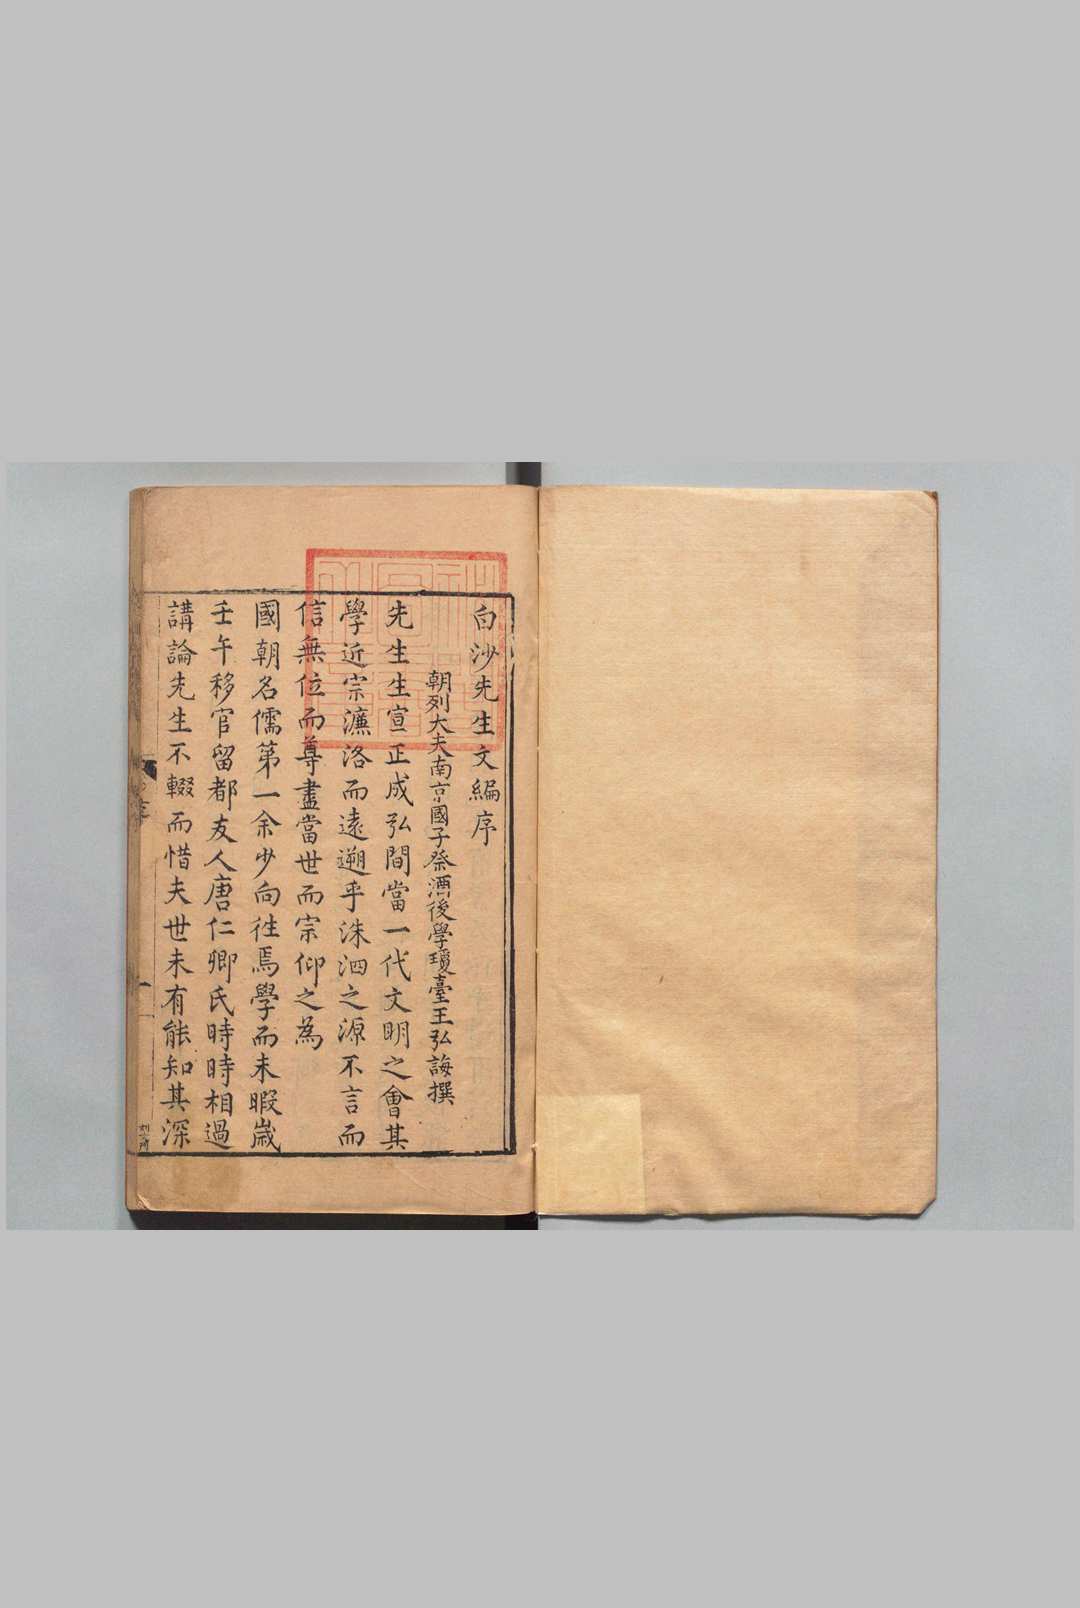 白沙先生文編序
朝列大夫南京國子祭酒後學瓊臺王弘誨撰
先生生宣正成弘間當一代文明之會其
學近宗濂洛而遠遡乎洙泗之源不言而
信無位而尊盡當世而宗仰之為
國朝名儒第一余少向徃焉學而未暇歲
壬午移官留都友人唐仁卿氏時時相過
講論先生不輟而惜夫世未有能知其深